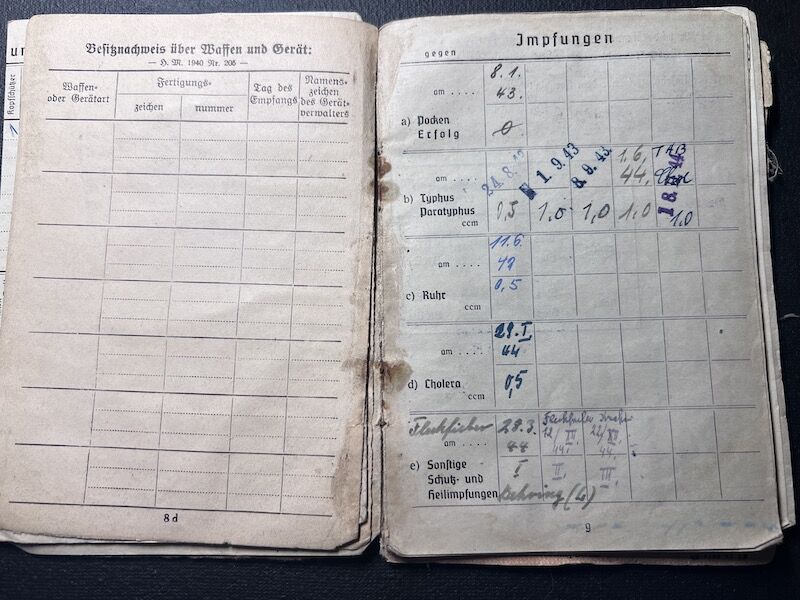 Kopfschützer
Besitznachweis über Waffen und Gerät:
— H. M. 1940 Nr. 205 —
Waffen- oder Gerätart
Fertigungs-
zeichen
nummer
Tag des Empfangs
Namens- zeichen des Gerät- verwalters
8d
Impfungen
gegen
8.1.
am .... 43.
a) Pocken
Erfolg
0
24.8.43 1.9.43 8.9.43 1.6. TAB
am .... 44, 18. 44
b) Typhus
Paratyphus 0,5 1,0 1,0 1,0 1,0
ccm
11.6.
am ....
c) Ruhr 0,5
ccm
29.I.
am .... 44
d) Cholera 0,5
ccm
Fleckfieber 28.3.
am .... 44 44. 44.
e) Sonstige I II. III.
Schutz- und
Heilimpfungen Behring (4)
9